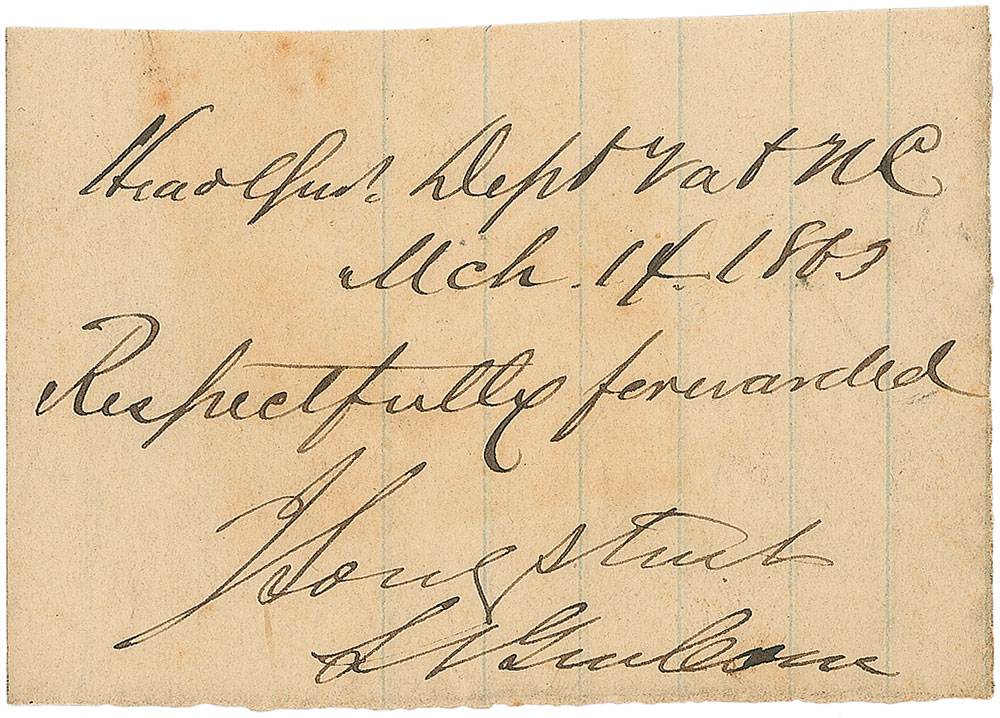 Head Qurs. Dept Va & NC
Mch. 14. 1863
Respectfully forwarded
J Longstreet
Lt Genl Comr